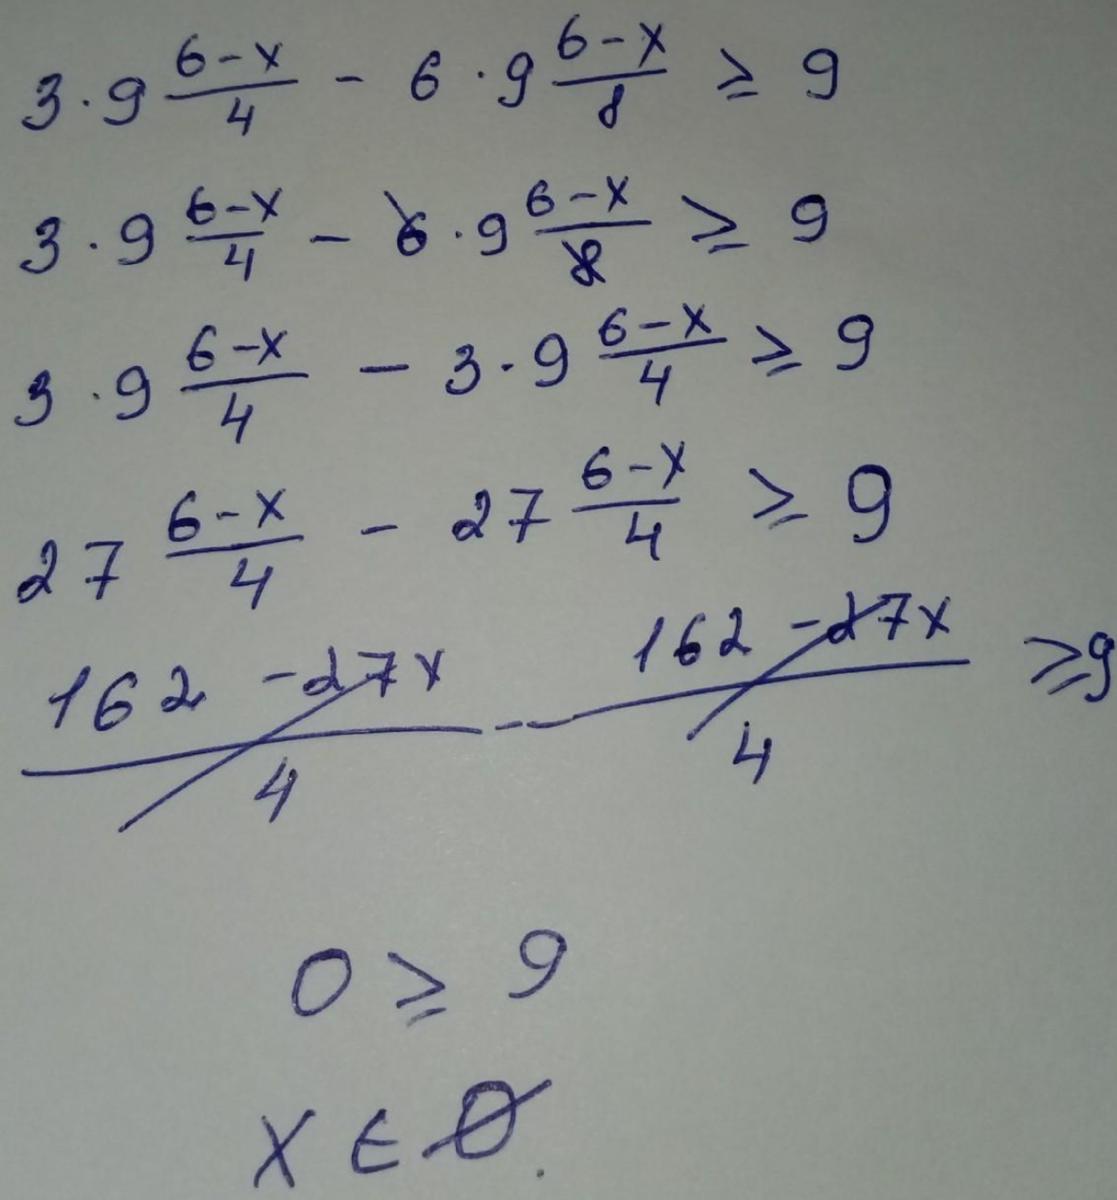 3 · 9 \frac{6-x}{4} - 6 · 9 \frac{6-x}{8} ⩾ 9
3 · 9 \frac{6-x}{4} - 6 · 9 \frac{6-x}{8} ⩾ 9
3 · 9 \frac{6-x}{4} - 3 · 9 \frac{6-x}{4} ⩾ 9
27 \frac{6-x}{4} - 27 \frac{6-x}{4} ⩾ 9
\frac{162-27x}{4} - \frac{162-27x}{4} ⩾ 9
0 ⩾ 9
x ∈ Ø.